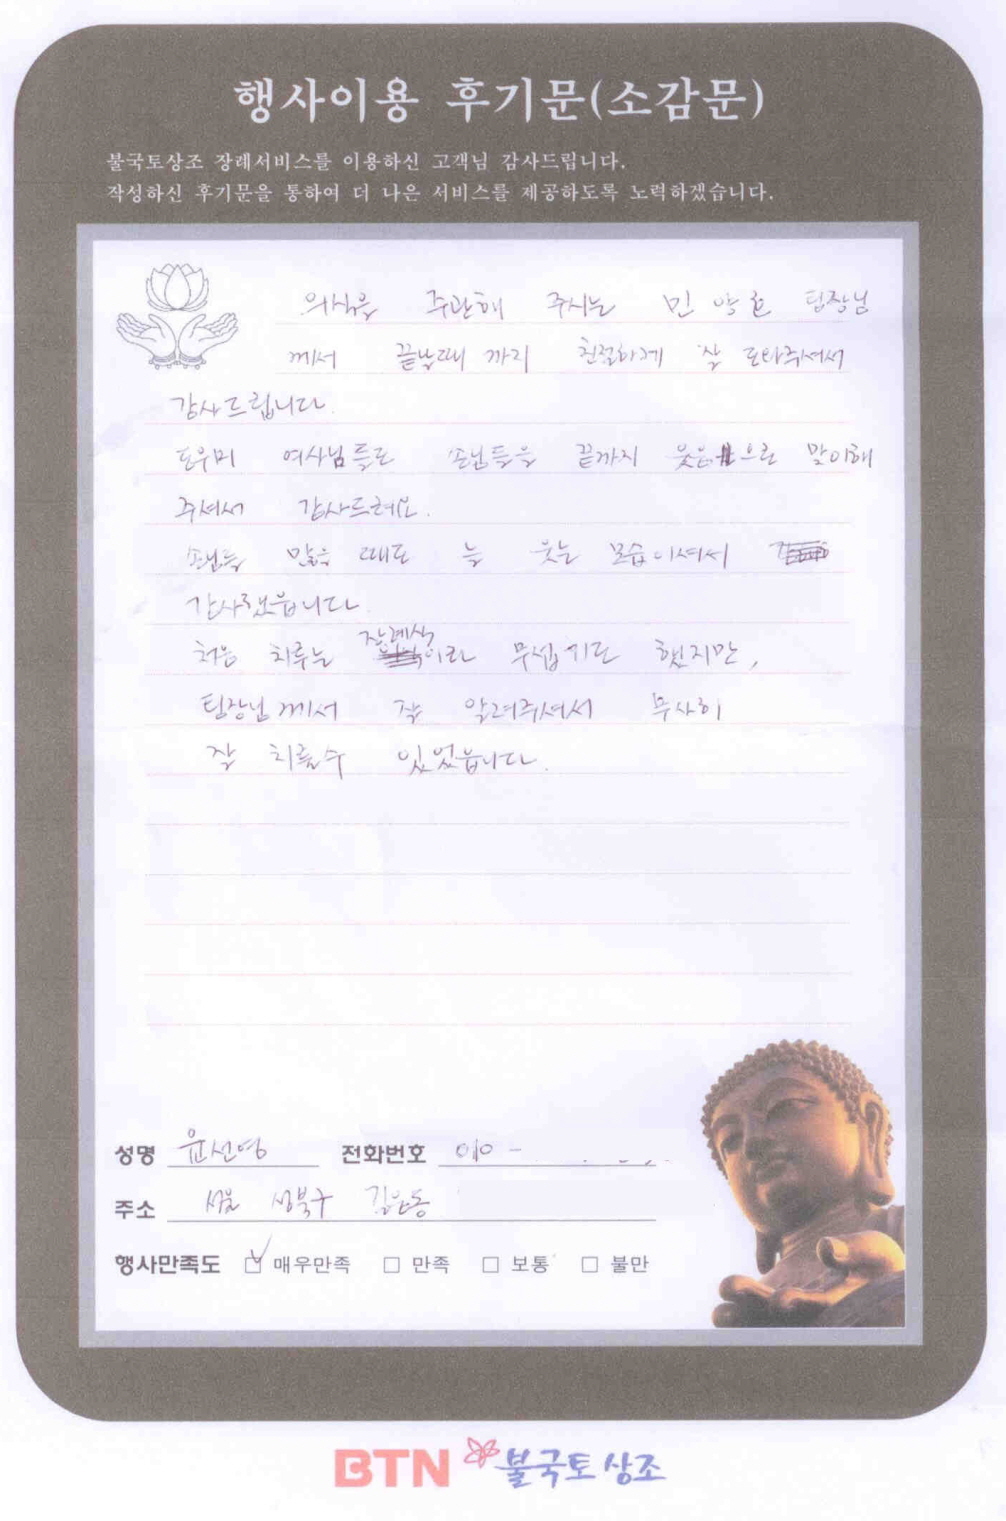 행사이용 후기문(소감문)
불국토상조 장례서비스를 이용하신 고객님 감사드립니다.
작성하신 후기문을 통하여 더 나은 서비스를 제공하도록 노력하겠습니다.
의식을 주관해 주시는 민양호 팀장님
께서 끝날때 까지 친절하게 잘 도와주셔서
감사드립니다.
도우미 여사님들도 손님들을 끝까지 웃음으로 맞이해
주셔서 감사드려요.
손님들 많을 때도 늘 웃는 모습이셔서
감사했읍니다.
처음 치루는 장례식이라 무섭기도 했지만,
팀장님께서 잘 알려주셔서 무사히
잘 치룰수 있었읍니다.
성명 윤선영 전화번호 010 -
주소 서울 성북구 길음동
행사만족도 매우만족 만족 보통 불만
BTN 불국토상조